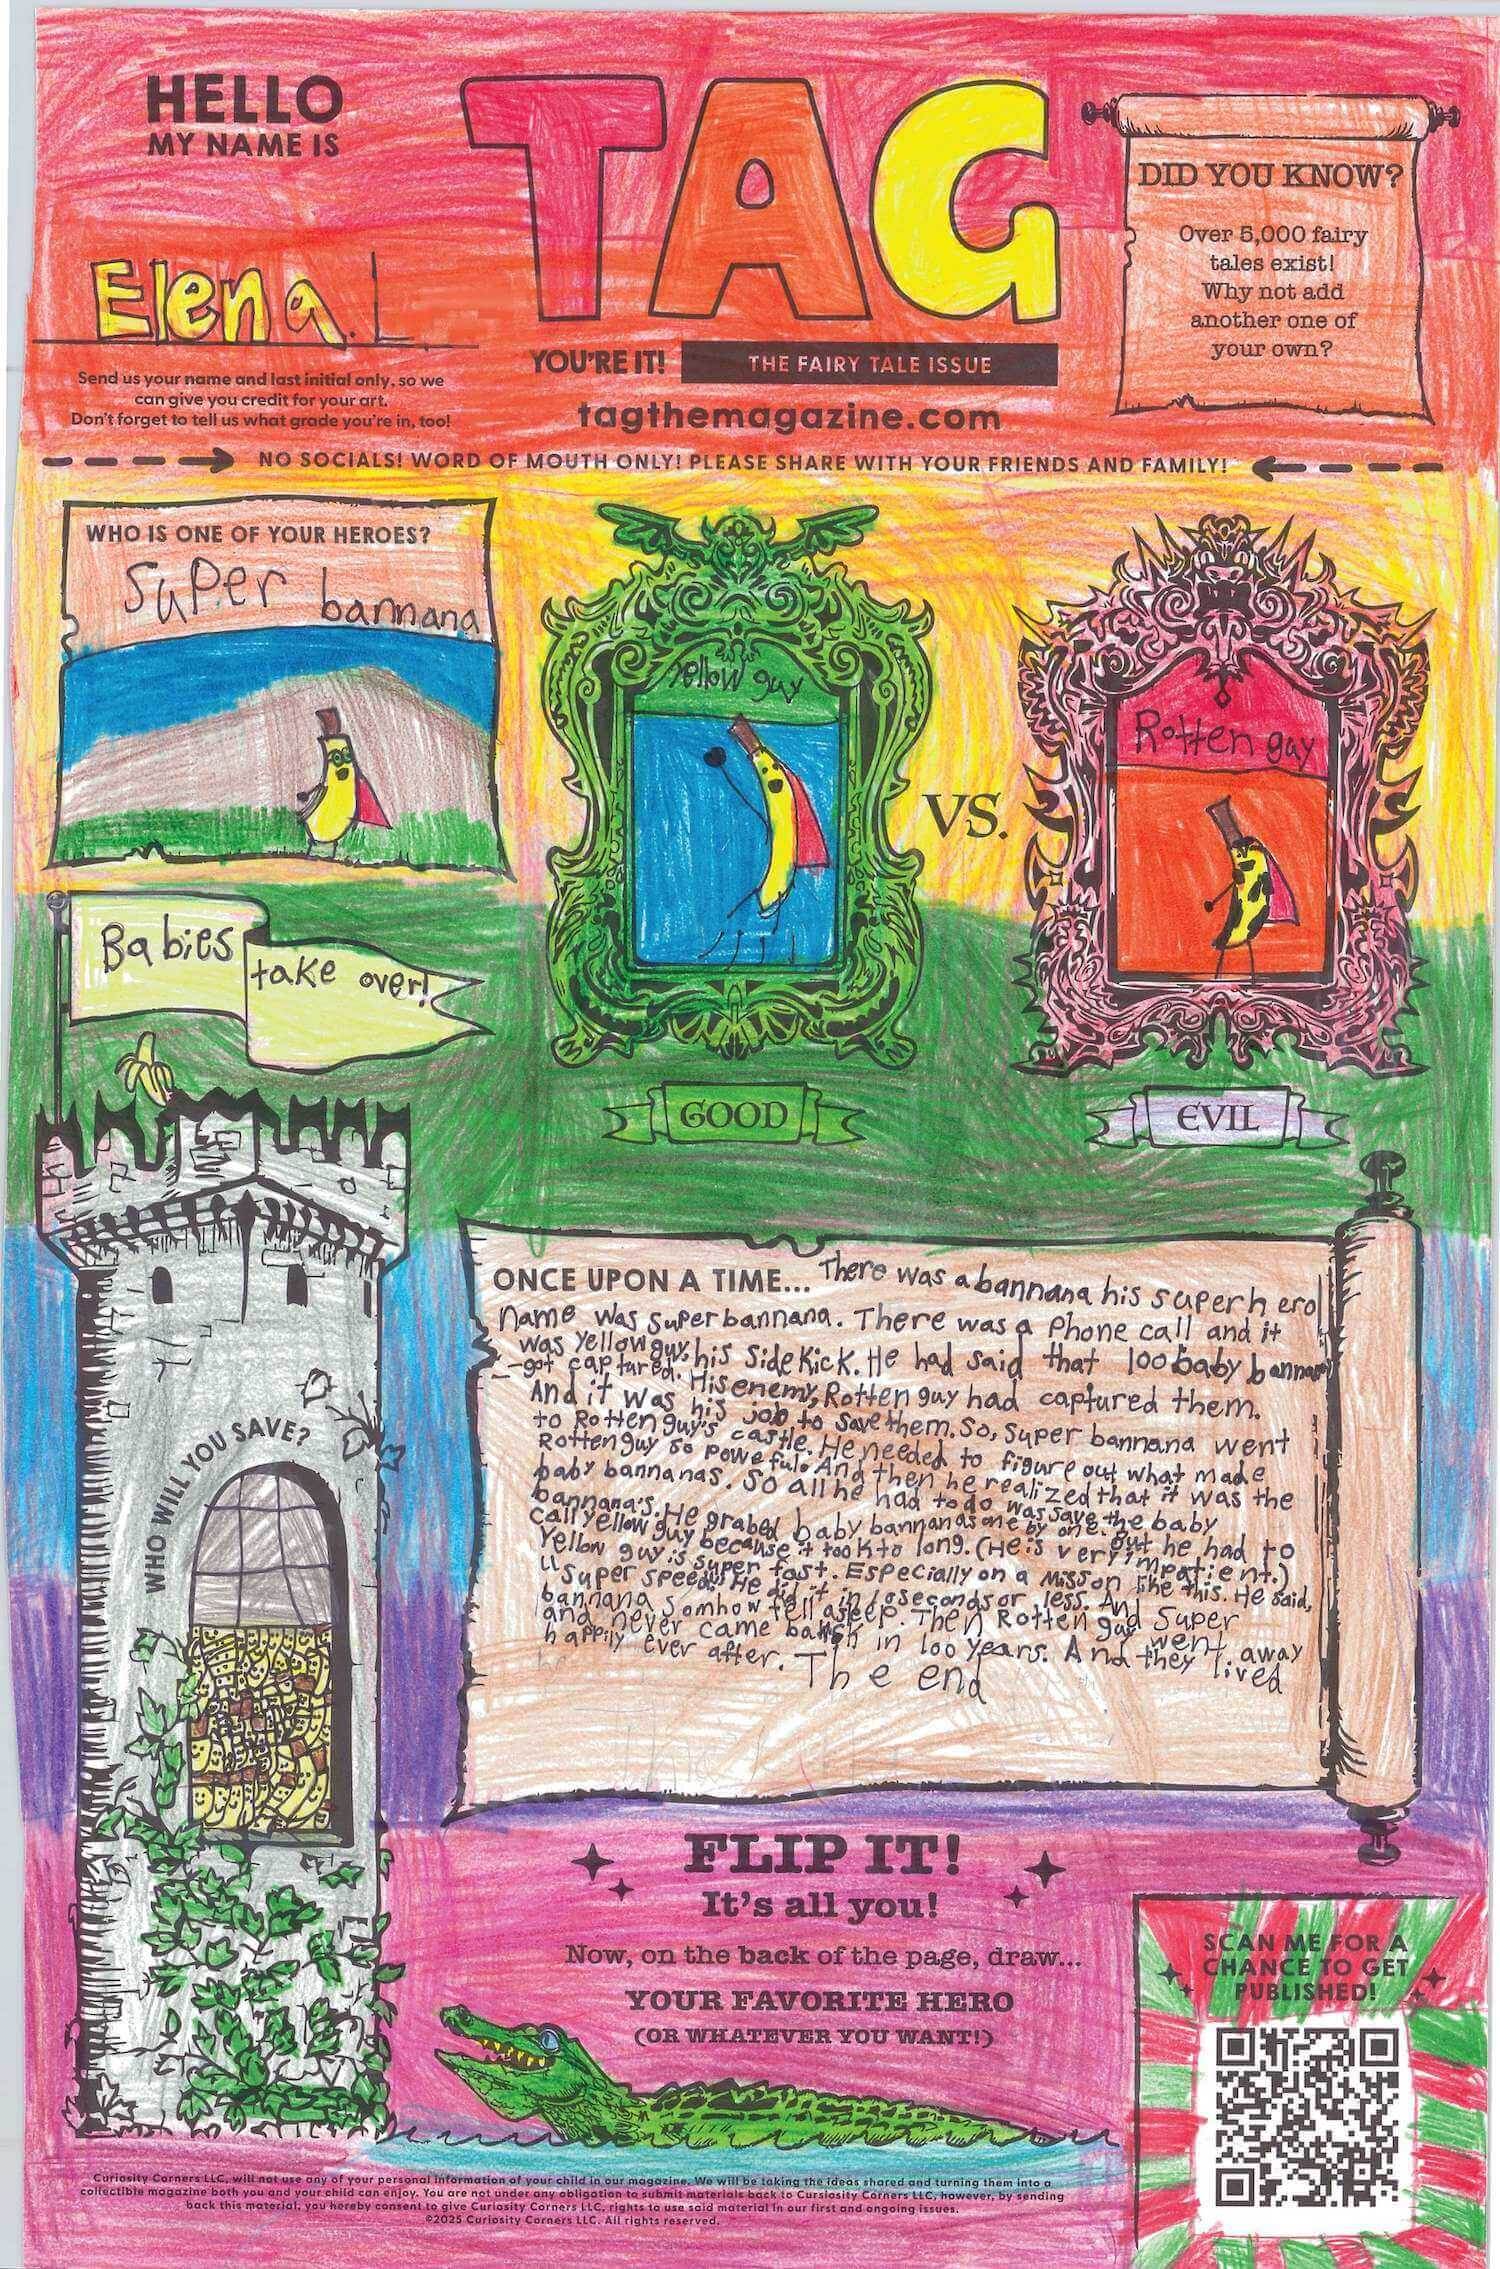 HELLO
MY NAME IS
Elena. L
Send us your name and last initial only, so we
can give you credit for your art.
Don't forget to tell us what grade you're in, too!
TAG
YOU'RE IT!
THE FAIRY TALE ISSUE
tagthemagazine.com
DID YOU KNOW?
Over 5,000 fairy
tales exist!
Why not add
another one of
your own?
NO SOCIALS! WORD OF MOUTH ONLY! PLEASE SHARE WITH YOUR FRIENDS AND FAMILY!
WHO IS ONE OF YOUR HEROES?
Super bannana
Yellow guy
VS.
Rotten guy
GOOD
EVIL
Babies take over!
WHO WILL YOU SAVE?
ONCE UPON A TIME... There was a bannana his superhero
name was super bannana. There was a Phone call and it
was Yellow guy, his Sidekick. He had said that 100 baby bannana
got captured. His enemy, Rotten guy had captured them.
And it was his job to save them. So, Super bannana went
to Rotten guy's castle. He needed to figure out what made
Rotten guy so poweful. And then he realized that it was the
baby bannanas. So all he had to do was save the baby
bannana's. He grabed baby bannanas one by one. But he had to
call yellow guy because it took to long. (He is very impatient.)
Yellow guy is super fast. Especially on a mission like this. He said,
"Super speed" He did it in 10 seconds or less. And Super
bannana somhow fell asleep. Then Rotten guy went away
and never came back in 100 years. And they lived
happily ever after. The end
FLIP IT!
It's all you!
Now, on the back of the page, draw...
YOUR FAVORITE HERO
(OR WHATEVER YOU WANT!)
SCAN ME FOR A
CHANCE TO GET
PUBLISHED!
Curiosity Corners LLC, will not use any of your personal information of your child in our magazine. We will be taking the ideas shared and turning them into a
collectible magazine both you and your child can enjoy. You are not under any obligation to submit materials back to Cursiosity Corners LLC, however, by sending
back this material, you hereby consent to give Curiosity Corners LLC, rights to use said material in our first and ongoing issues.
©2025 Curiosity Corners LLC. All rights reserved.